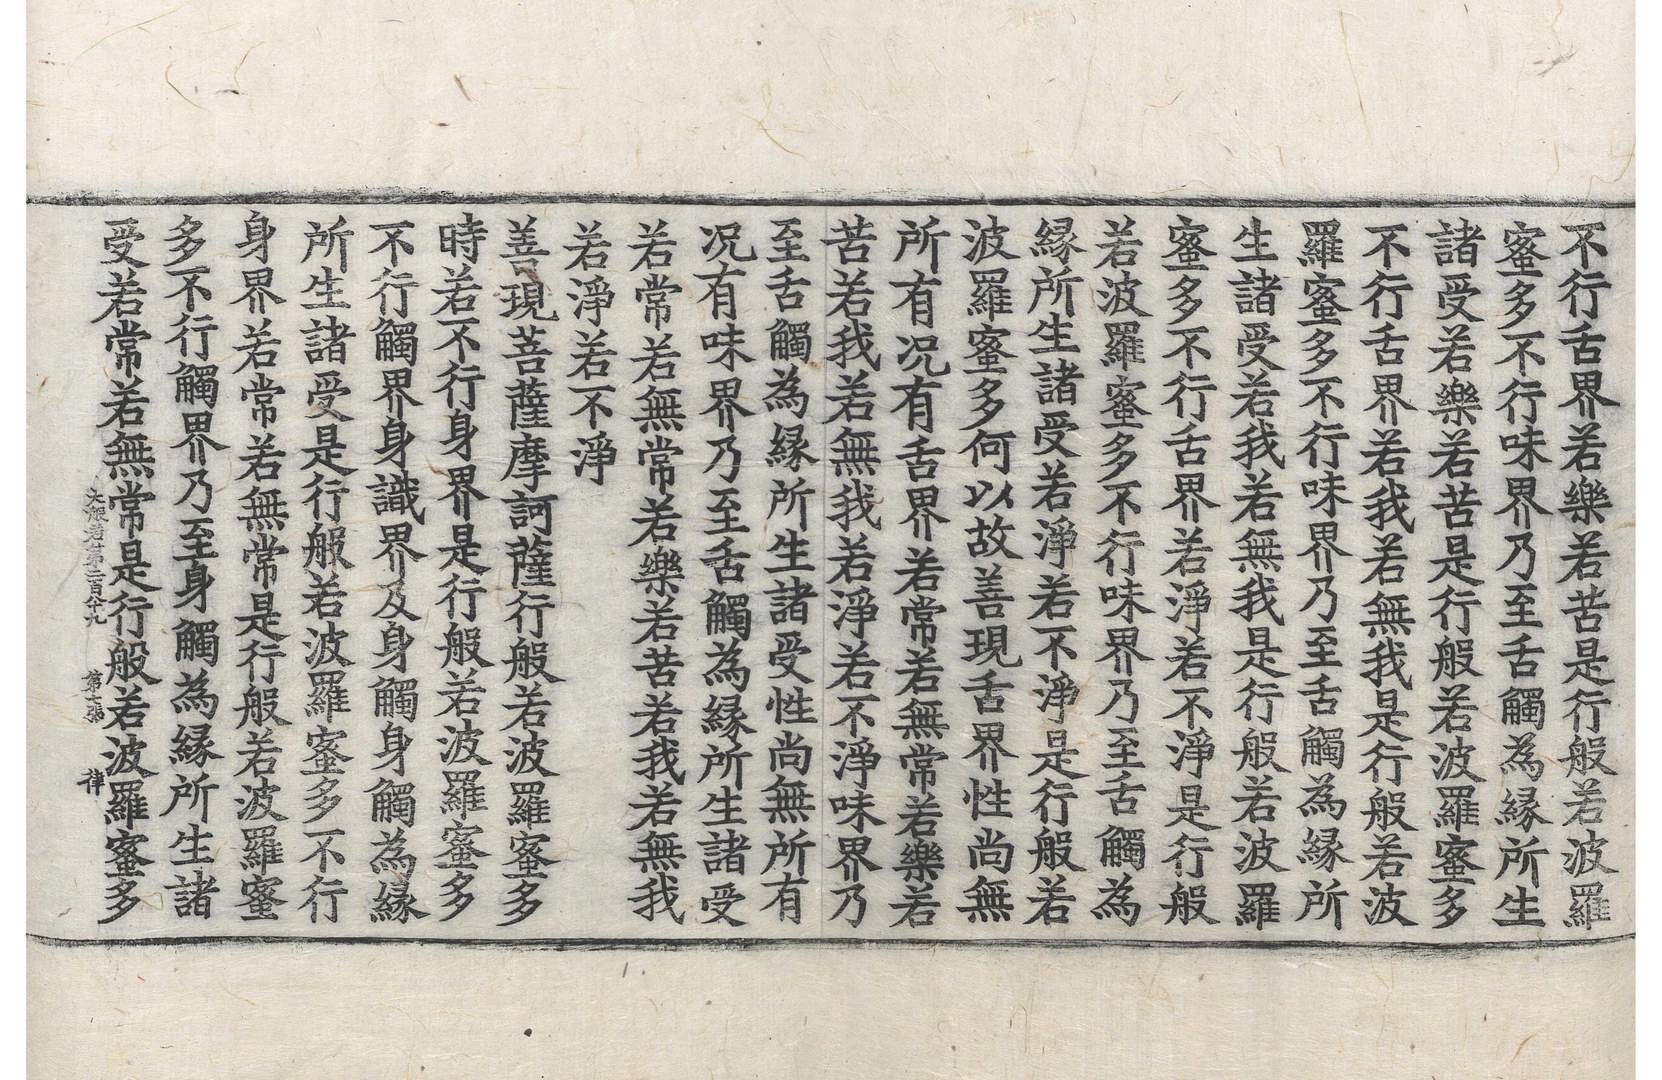 不行舌界若樂若苦是行般若波羅
蜜多不行味界乃至舌觸為緣所生
諸受若樂若苦是行般若波羅蜜多
不行舌界若我若無我是行般若波
羅蜜多不行味界乃至舌觸為緣所
生諸受若我若無我是行般若波羅
蜜多不行舌界若淨若不淨是行般
若波羅蜜多不行味界乃至舌觸為
緣所生諸受若淨若不淨是行般若
波羅蜜多何以故善現舌界性尚無
所有况有舌界若常若無常若樂若
苦若我若無我若淨若不淨味界乃
至舌觸為緣所生諸受性尚無所有
况有味界乃至舌觸為緣所生諸受
若常若無常若樂若苦若我若無我
若淨若不淨
善現菩薩摩訶薩行般若波羅蜜多
時若不行身界是行般若波羅蜜多
不行觸界身識界及身觸身觸為緣
所生諸受是行般若波羅蜜多不行
身界若常若無常是行般若波羅蜜
多不行觸界乃至身觸為緣所生諸
受若常若無常是行般若波羅蜜多
大般若第二百八十九 第 張 律